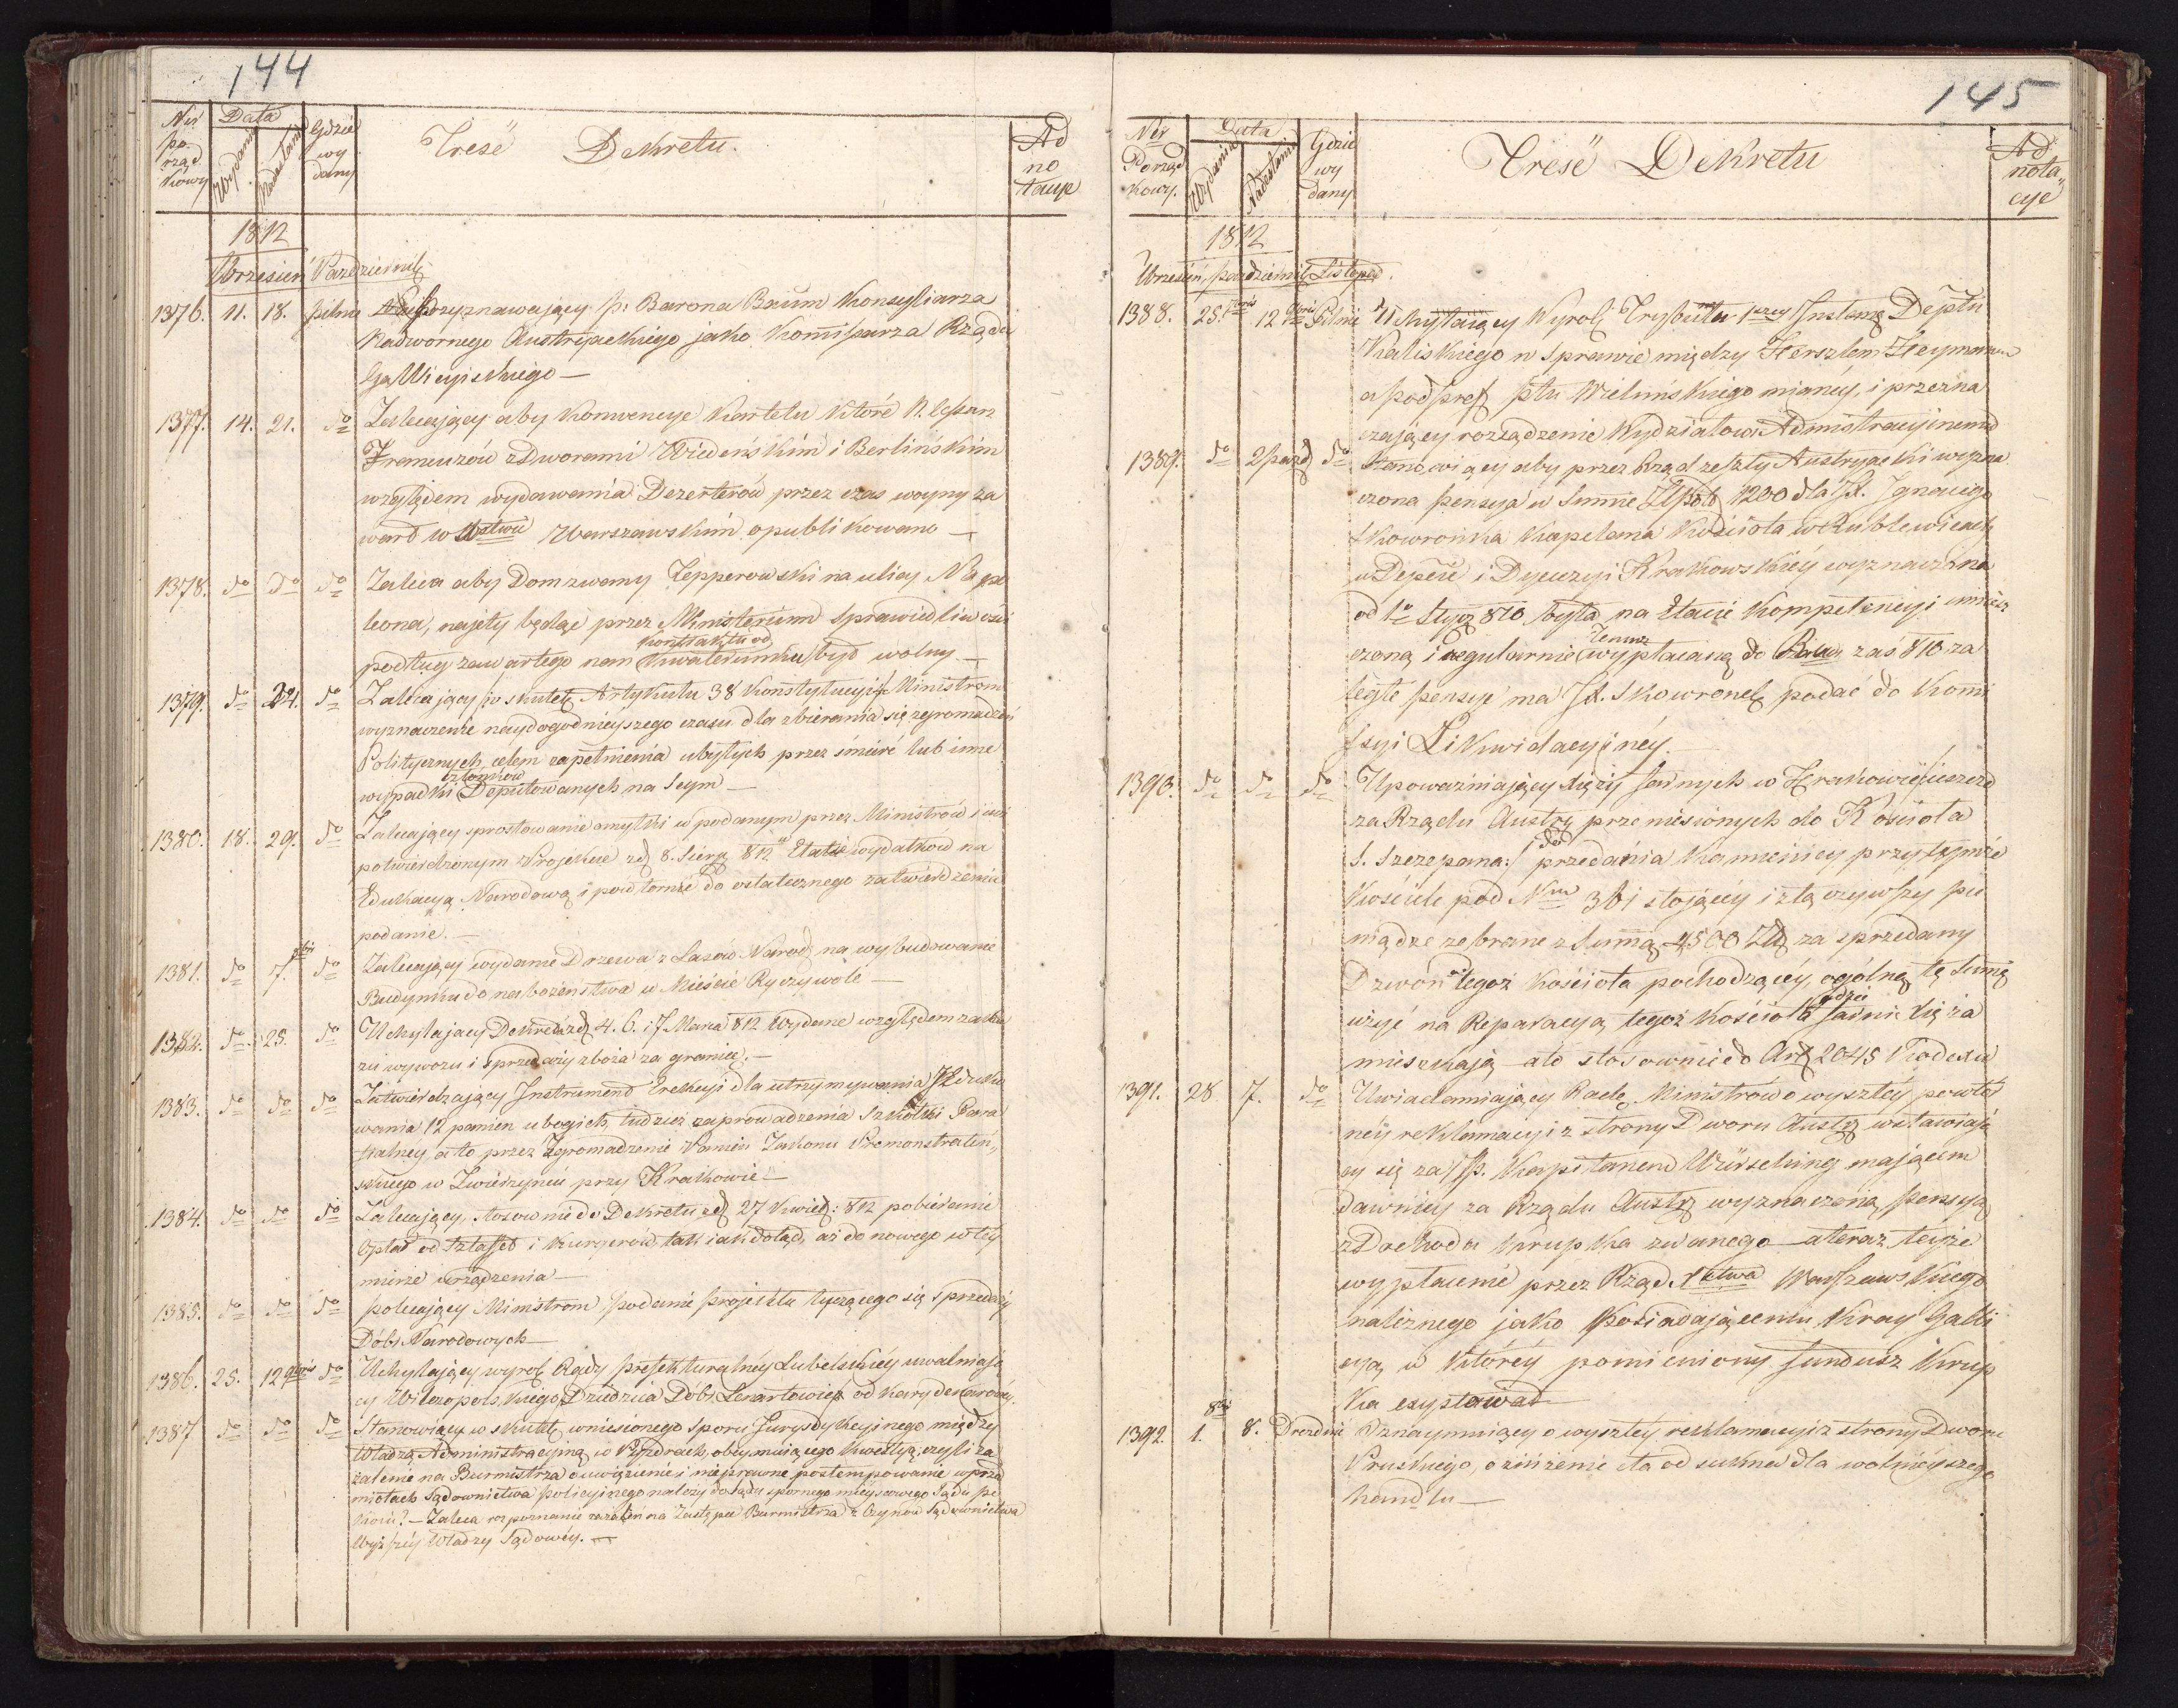 144
Nr Data Gdzie Treść Dekretu. Ad
po wydania nadesłania wy no
rząd dany tacye
kowy
1812
Wrzesień Październik
1376. 11. 18. pilnie przyznawaiący P: Barona Baum Konsyliarza
Nadwornego Austryackiego jako Kommissarza Rządu
Gallicyiskiego —
1377. 14. 21. do Zalecający aby Konwencye Kartelu które N. Cesarz
Francuzów z Dworami Wiedeńskim i Berlińskim
względem wydawania Dezerterów przez czas woyny za
warł w Xstwie Warszawskim opublikowano —
1378. do do do Zaleca aby Dom zwany Tepperowski na ulicy Napo
leona, najęty będąc przez Ministerium Sprawiedliwości
podług zawartego nam Kontraktu od Kwaterunku był wolny —
1379. do 24. do Zalecający w skutek Artykułu 38 Konstytucyi Ministrom
wyznaczenie naydogodnieyszego czasu dla zbierania się zgromadzeń
Politycznych, celem zapełnienia ubyłych przez śmierć lub inne
wypadki członków Deputowanych na Seym —
1380. 18. 29. do Zalecający sprostowanie omyłki w podanym przez Ministrów i
potwierdzonym Projekcie z d. 8. Sierp. 812 Etacie wydatków na
Edukacyą Narodową i powtórnie go do ostatecznego zatwierdzenia
podanie. —
1381. do 7. do Zalecający wydanie Drzewa z Lasów Narod. na wybudowanie
Budynku do nabożeństwa w Mieście Ryczywole —
1382. do 25. do Uchylający Dekreta z d. 4. 6. i 7 Marca 812 wydane względem zaka
zu wywozu i sprzedaży zboża za granicę. —
1383. do do do Zatwierdzający Instrument Erekcyi dla utrzymywania i Eduko
wania 12 panien ubogich, tudzież zaprowadzenia Szkółki Para
fialney, a to przez Zgromadzenie Panien Zakonu Premonstrateń
skiego w Zwierzyńcu przy Krakowie —
1384. do do do Zalecający, stosownie do Dekretu z d. 27 Kwiet: 812 pobieranie
Opłat od Sztafet i Kuryerów, tak iak dotąd, aż do nowego w téy
mierze urządzenia —
1385. do do do polecający Ministrom podanie projektu tyczącego się sprzedaży
Dóbr Narodowych —
1386. 25. 12 do Uchylający wyrok Rady prefekturalnéy Lubelskiéy uwalniają
cy Wilczopolskiego Dziedzica Dóbr Lenartowice od kary dekarowéy.
1387 do do do Stanowiący w skutek wniesionego Sporu Jurysdykcyinego między
Władzą Administracyiną w Pyzdrach, obeymuiącego kwestyą, czyli za
żalenie na Burmistrza o uwięzienie i nieprawne postempowanie w przed
miotach Sądownictwa policyinego należy do Sądu spornego mieyscowego Sądu po
koiu? — Zaleca rozpoznanie zażaleń na Zastępce Burmistrza z Czynów Sądownictwa
Wyższéy Władzy Sądowéy. —
145
Nr Data Gdzie Treść Dekretu Ad
Porząd wydania nadesłania wy nota
kowy. dany cye
1812
Wrzesień, październik Listopad.
1388. 25. 12 Pilnie Uchylaiący Wyrok Trybunału 1szey Instancyi Deptu
Kaliskiego w Sprawie między Herszlem Heymanem
a podpref. Ptu Wieluńskiego mianey, i przezna
czający rozsądzenie Wydziałowi Administracyinemu
1389. do 2 Pazd. do Stanowiący aby przez Rząd zeszły Austryacki wyzna
czona pensya w Summie Złpol. 1200 dla X. Ignacego
Skowronka Kapelana Kościoła w Rublewicach
w Depcie i Dyecezyi Krakowskiéy wyznaczona
od 1o Stycz. 810, była na Etacie Kompetencyi umiesz
czoną i regularnie Temuz wypłacaną do Czasu zaś 810 za
ległe pensye ma X. Skowronek podać do Kommi
ssyi Likwidacyinéy. —
1390. do do do Upoważniający Xięży Farnych w Krakowie (ieszcze
za Rządu Austr. przeniesionych do Kościoła
S. Szczepana:) do przedania Kamienicy przy tymże
Kościele pod Nrm 361 stojącéy i złączywszy pie
niądze zebrane z Summą 4500 Zł. za sprzedany
Dzwon tegoż Kościoła pochodzącéy, ogólną tę Summę
użyć na Reparacyą tegoż Kościoła gdzie Farni Xięża
mieszkają — ale stosownie do Art. 2045 Kodexu
1391. 28. 7. do Uwiadamiający Radę Ministrów o wyszłéy powtór
néy reklamacyi z strony Dworu Austr. wstawiają
cy się za P. Kapitanem Würsching mającem
dawniey za Rządu Austr. wyznaczoną pensyą
z Dochodu Krupka zwanego — a teraz teyże
wypłacenie przez Rząd Xiętwa Warszawskiego
należnego jako Posiadającemu Kray Galli
cyą w któréy pomieniony fundusz Krup
ka exystował
1392. 8bra 1. 8. Drezdnie Oznaymuiący o wyszłéy reklamacyi z strony Dworu
Pruskiego, o zniżenie cła od sukna dla wolnieyszego
handlu —